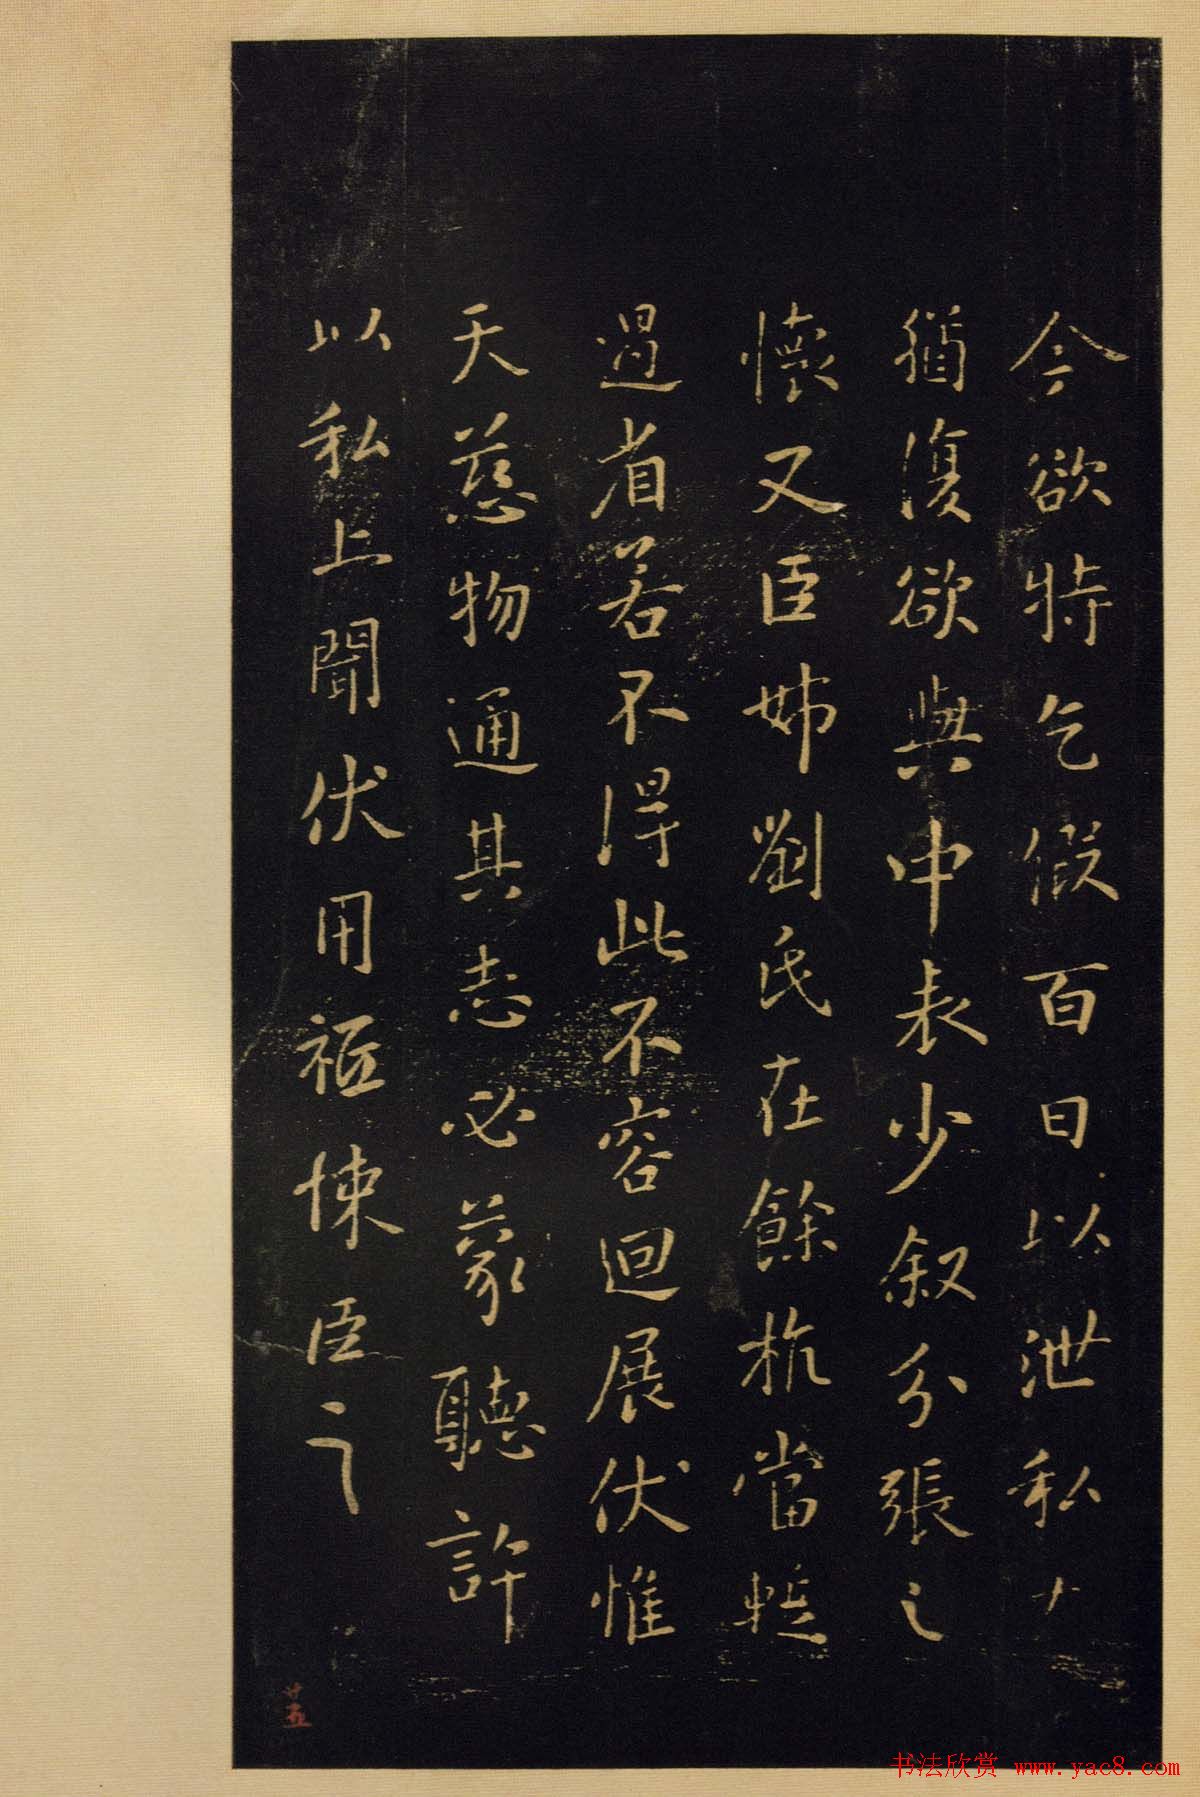 今欲特乞假百日以泄私
猶復欲與中表少叙分張之
懷又臣姊劉氏在餘杭當蹔
過省若不得此不容迴展伏惟
天慈物通其志必蒙聽許
以私上聞伏用祗悚臣之
书法欣赏 www.yac8.com